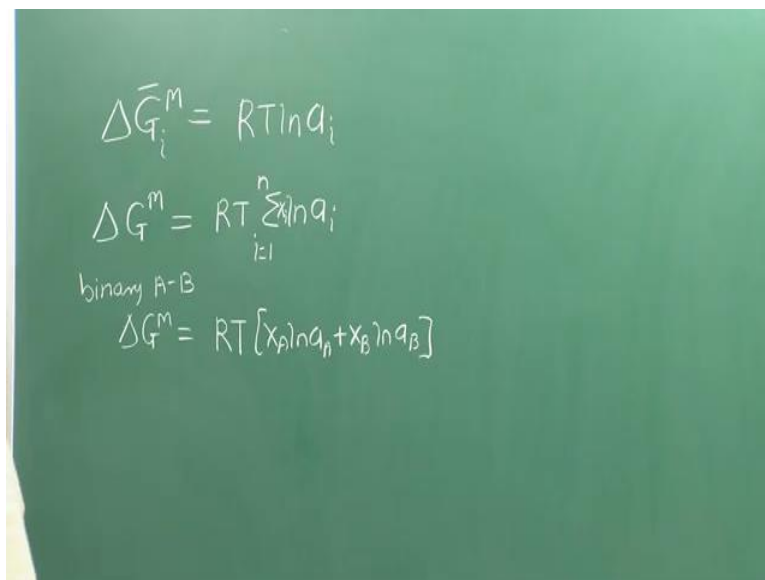 ΔG̅ᵢᴹ = RT ln aᵢ
ΔGᴹ = RT ∑ⁿᵢ₌₁ xᵢ ln aᵢ
binary A-B
ΔGᴹ = RT [x_A ln a_A + x_B ln a_B]